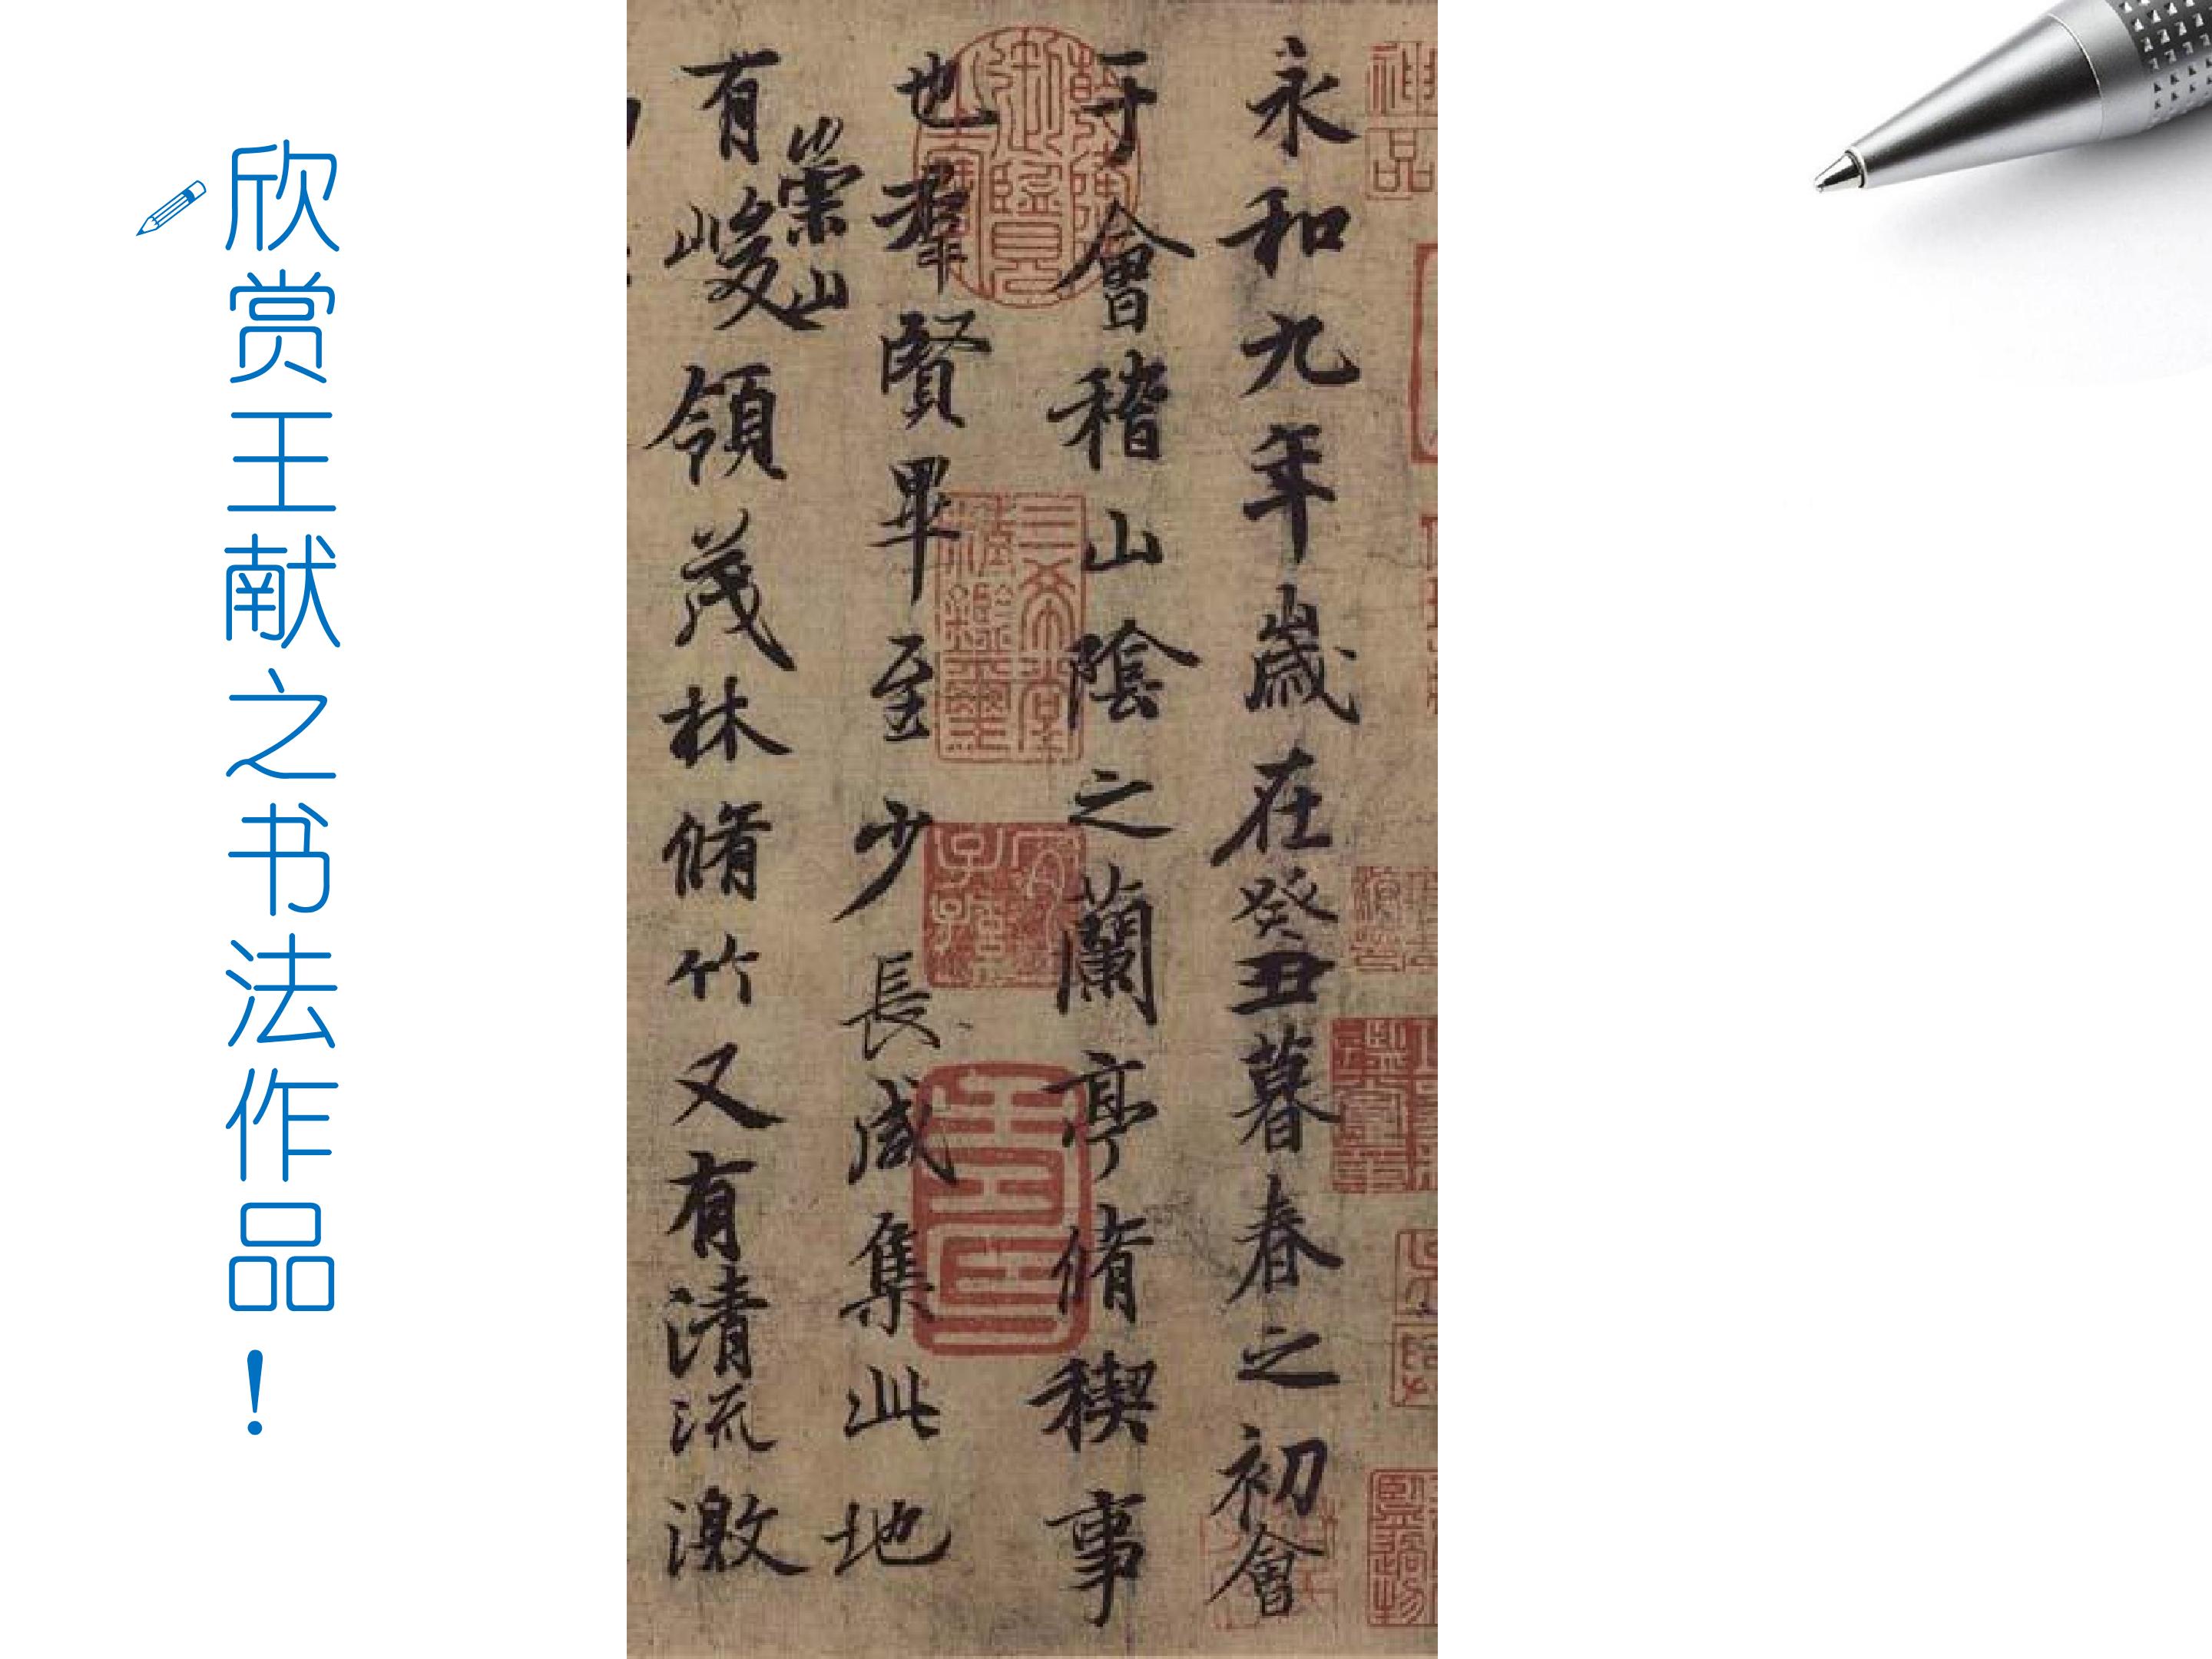 欣赏王献之书法作品！
永和九年歲在癸丑暮春之初會
于會稽山陰之蘭亭脩稧事
也羣賢畢至少長咸集此地
有崇山峻領茂林脩竹又有清流激
神品
三希堂精鑑璽
宜子孫